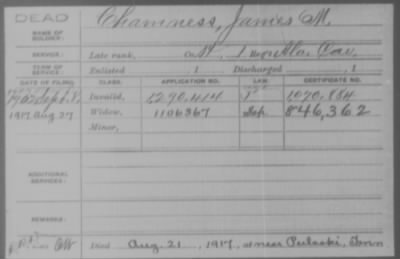 DEAD
NAME OF SOLDIER: Chamness, James M.
SERVICE: Late rank, Co. H, 1 Reg't Ala Cav,
TERM OF SERVICE: Enlisted , 1 Discharged , 1
DATE OF FILING. CLASS. APPLICATION NO. LAW. CERTIFICATE NO.
1902 Sept. 8, Invalid, 1290,414 1070,884
1917, Aug 27 Widow, 1106367 Sep. 846,362
Minor,
ADDITIONAL SERVICES:
REMARKS:
Died Aug. 21, 1917, at near Pulaski, Tenn